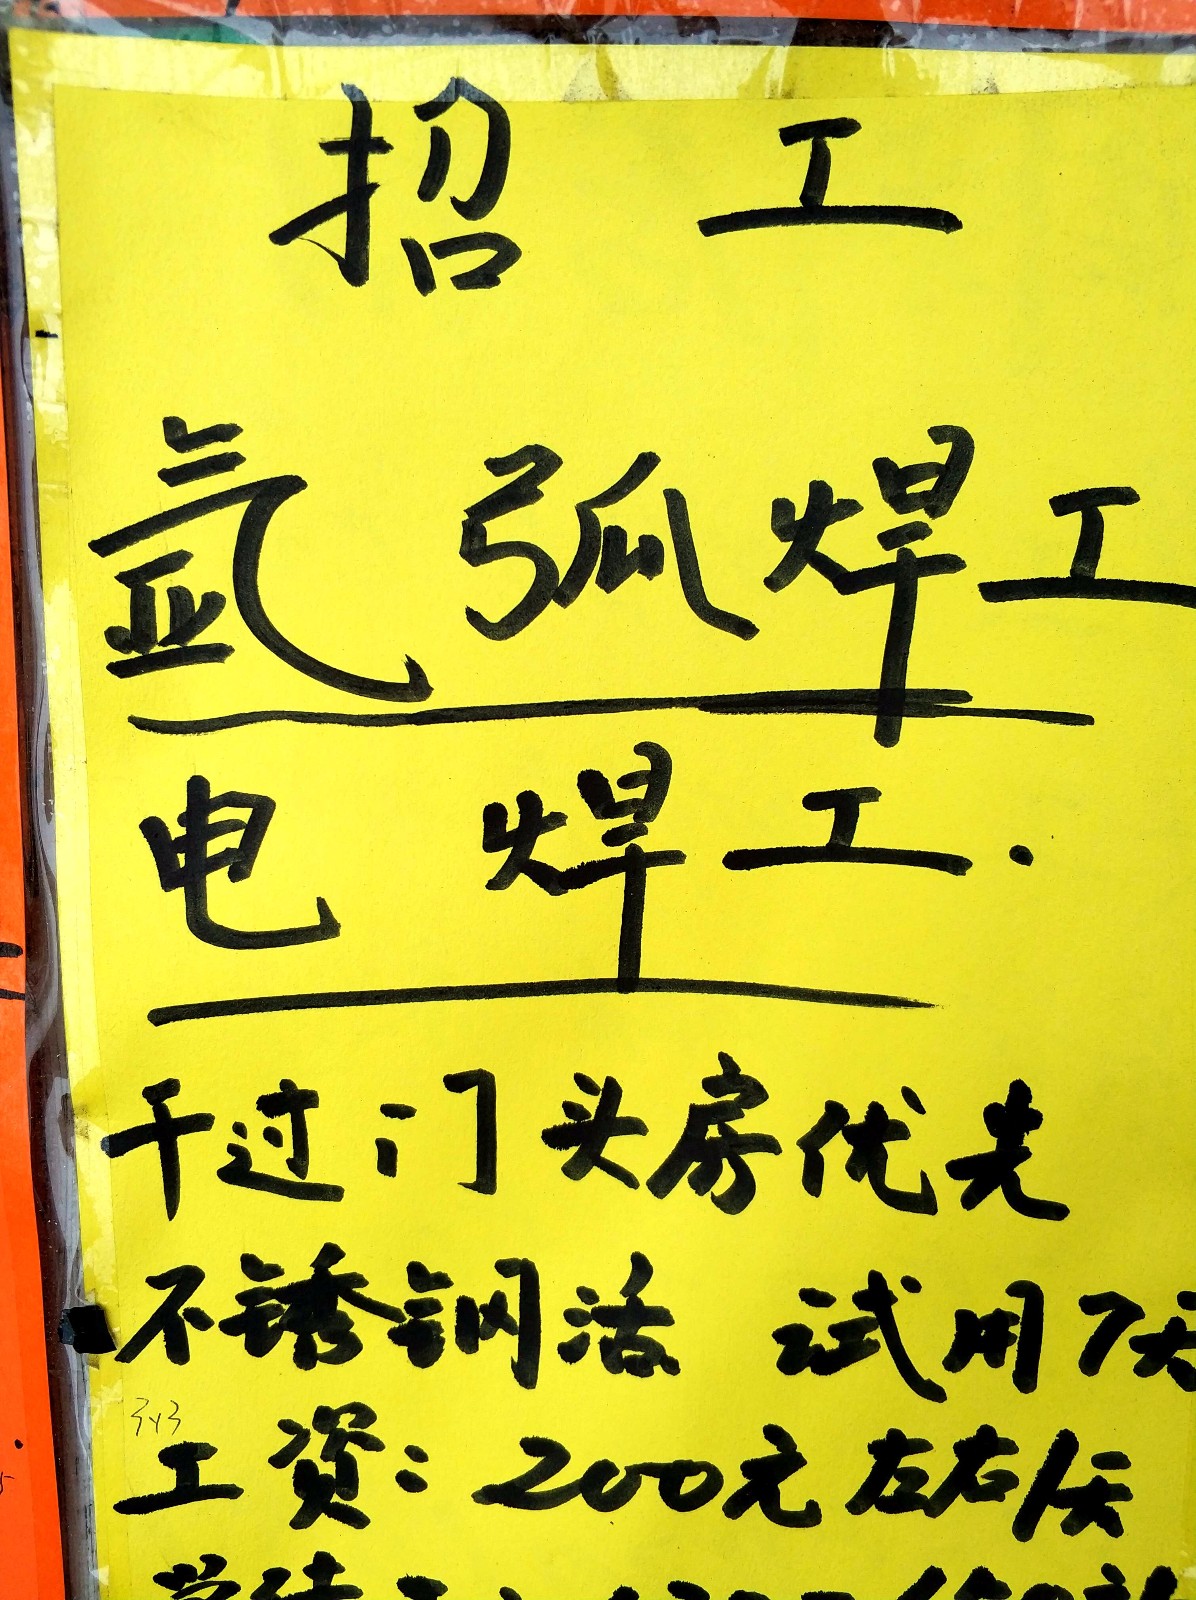 招 工
氩 弧焊工
电 焊工.
干过门头房优先
不锈钢活 试用7天
3y3
工资:200元左右/天